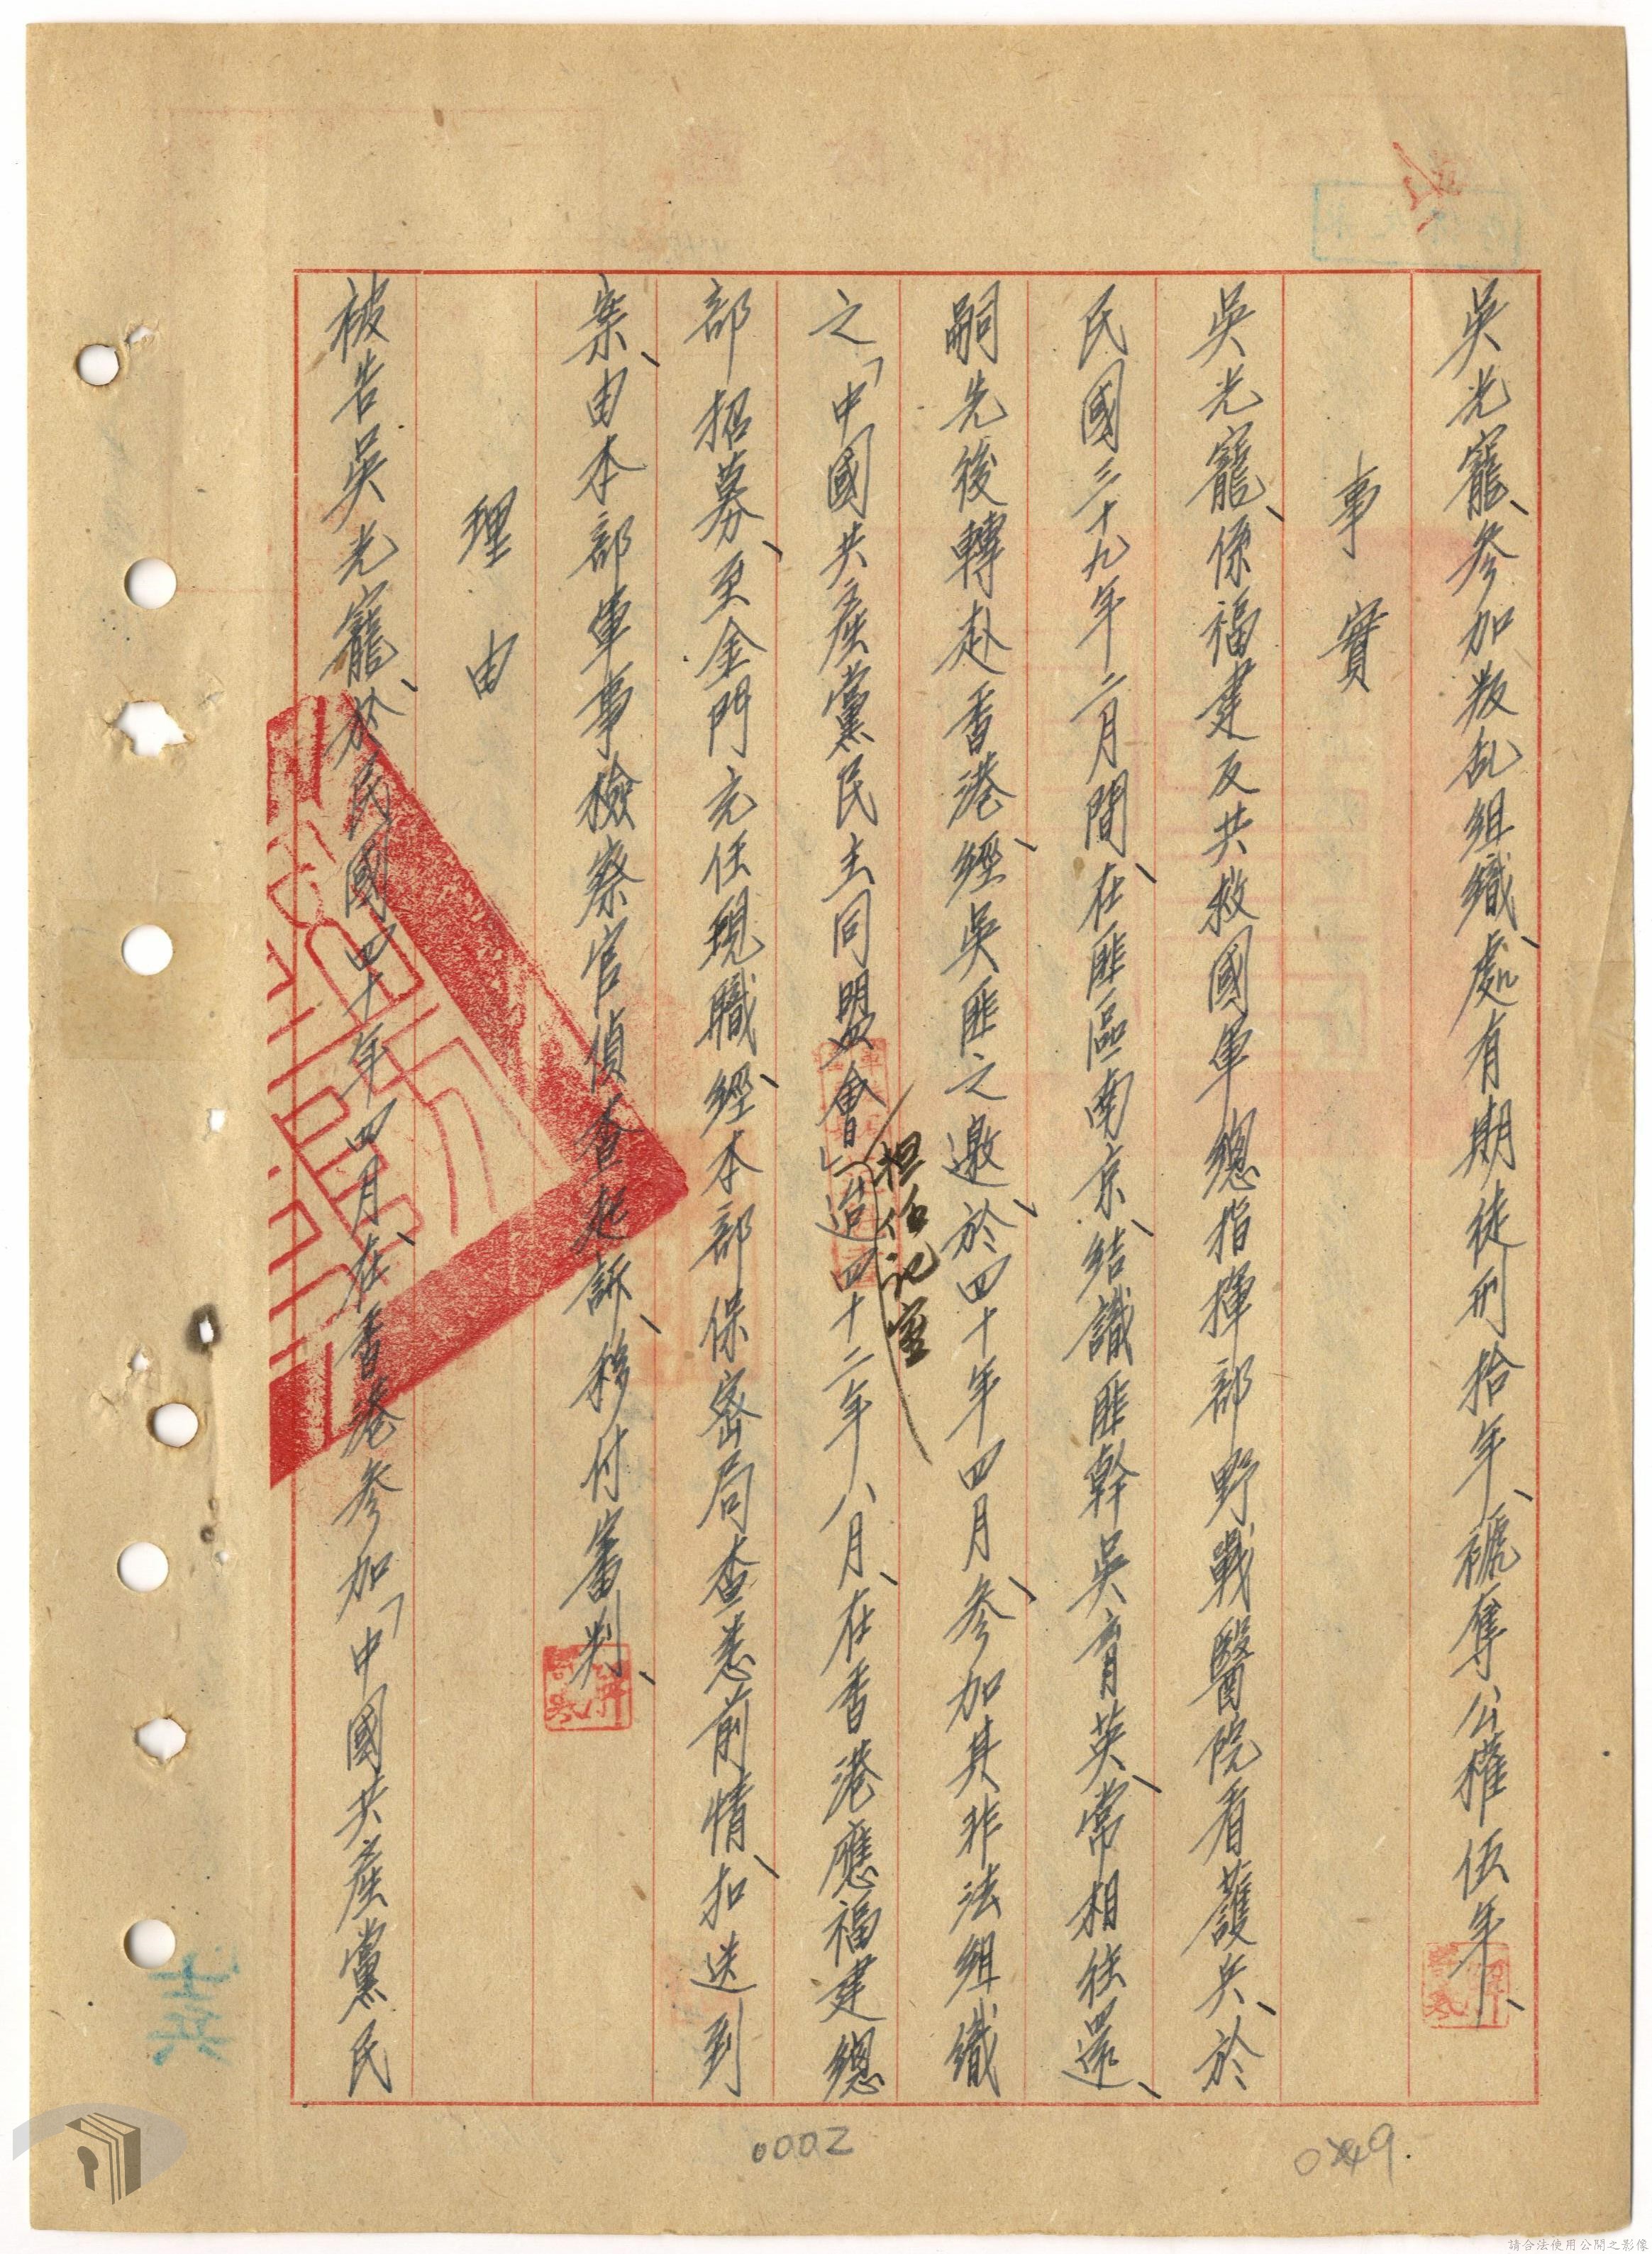 吳光寵、參加叛乱组織、處有期徒刑拾年、褫奪公權伍年、
事實
吳光寵、係福建反共救國軍總指揮部野戰醫院看護兵、於
民國三十九年二月間、在匪區南京、結識匪幹吳育英、常相往還、
嗣先後轉赴香港、經吳匪之邀、於四十年四月、參加其非法組織
之「中國共產黨民主同盟會」
担任記室
迨四十二年八月、在香港應福建總
部招募、至金門充任現職、經本部保密局查悉前情、扣送到
案、由本部軍事檢察官偵查起訴、移付審判、
理由
被告吳光寵、於民國四十年四月、在香港參加「中國共產黨民
士兵
0002
049.
請合法使用公開之影像